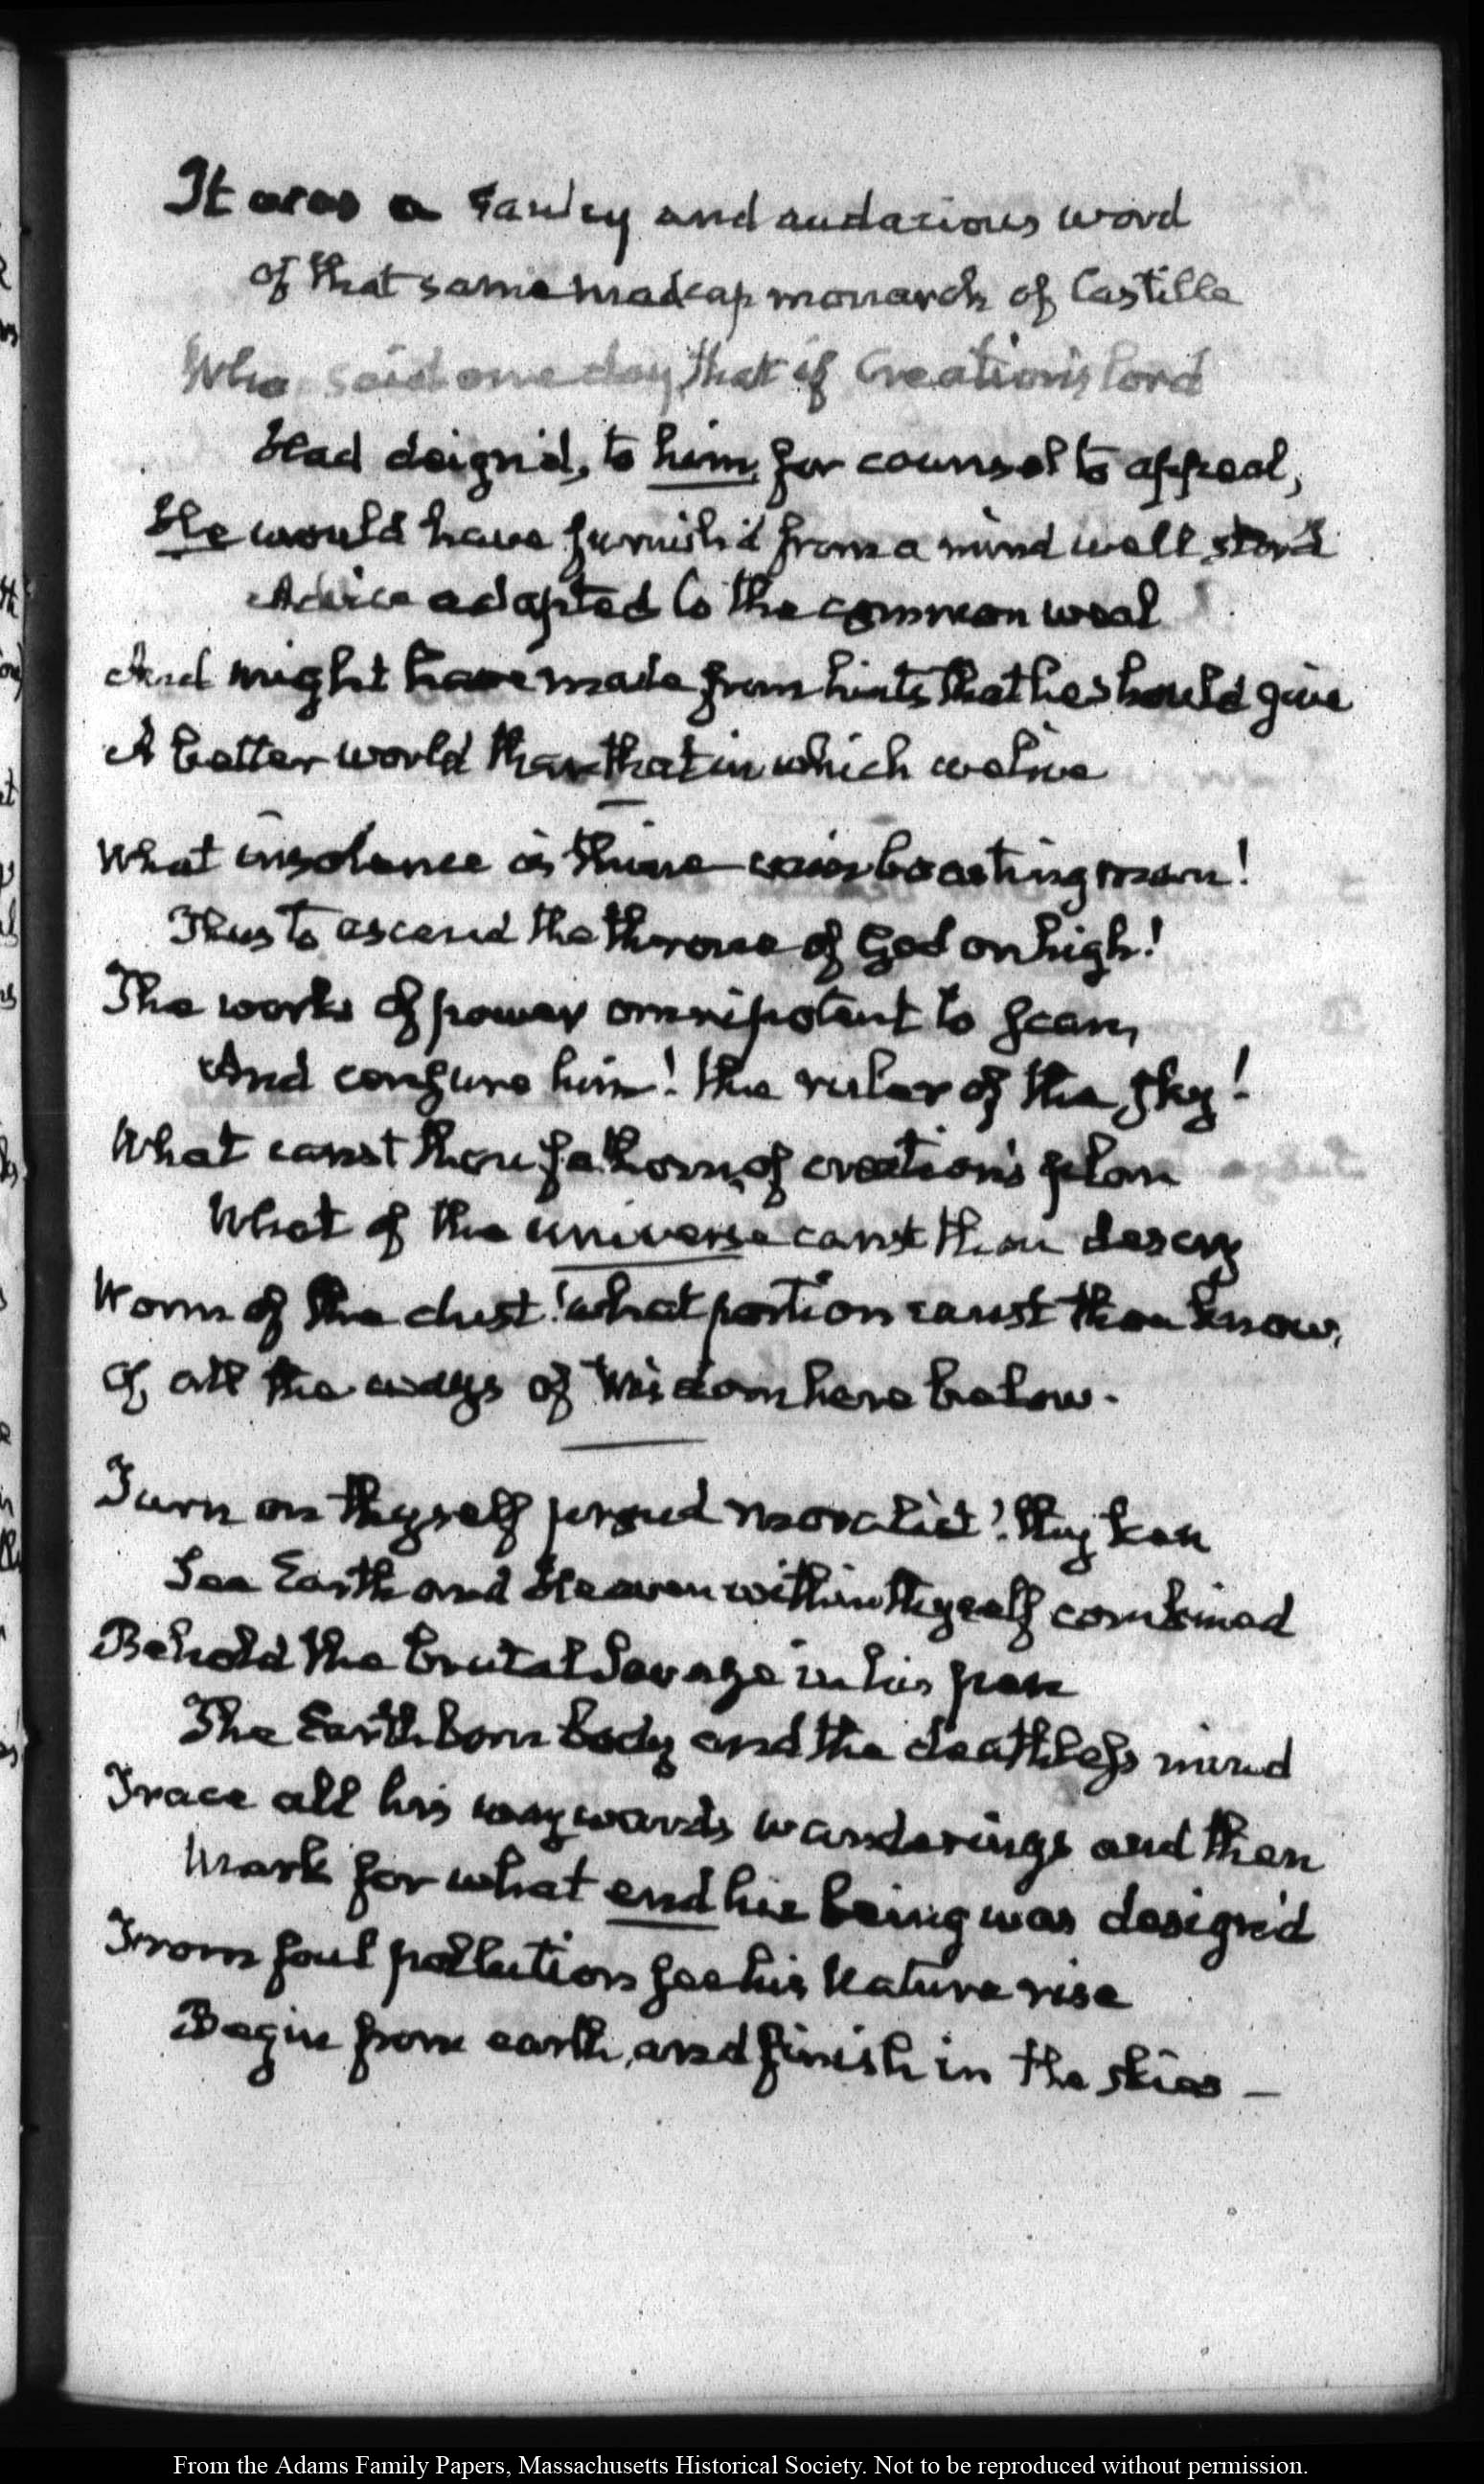 It was a saucy and audacious word
of that same madcap monarch of Castille
Who said one day, that if Creation's lord
Had deign'd, to him, for counsel to appeal,
He would have furnish'd from a mind well stor'd
Advice adapted to the common weal
And might have made from hints that he should give
A better world than that in which we live
What insolence is thine vain boasting man!
Thus to ascend the throne of God on high!
The works of power omnipotent to scan,
And censure him! the ruler of the sky!
What canst thou fathom, of creation's plan
What of the universe canst thou descry
Worm of the dust! what portion canst thou know,
Of all the ways of Wisdom here below.
Turn on thyself proud moralist! thy ken
See Earth and Heaven within thyself combined
Behold the brutal Savage in his pen
The Earth born body and the deathless mind
Trace all his waywards wanderings and then
Mark for what end his being was design'd
From foul pollution see his Nature rise
Begin from earth, and finish in the skies —
From the Adams Family Papers, Massachusetts Historical Society. Not to be reproduced without permission.